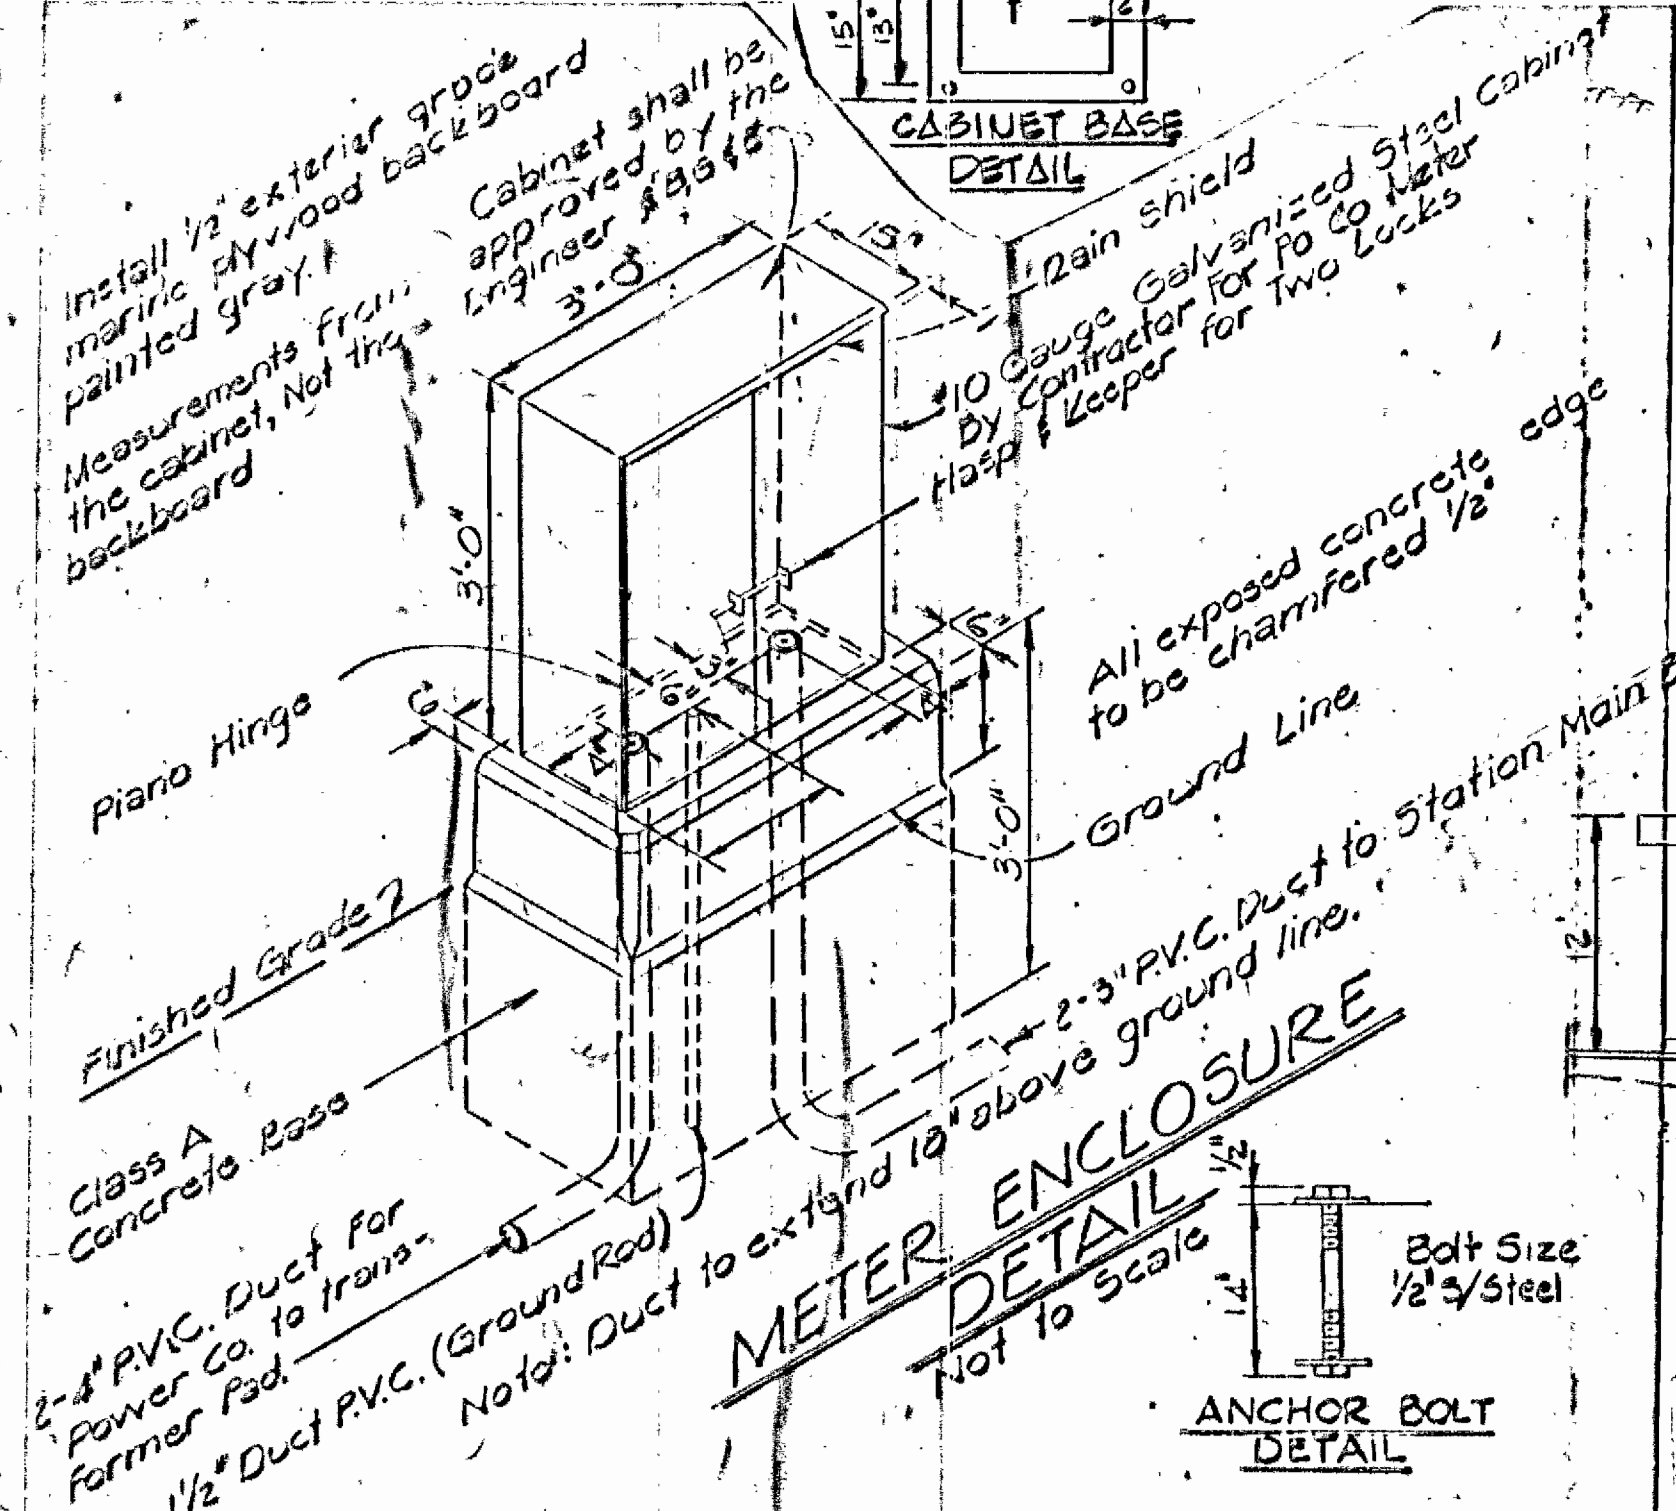 15"
13"
CABINET BASE
DETAIL
Install 1/2" exterior grade
marine plywood backboard
painted gray.
Measurements from
the cabinet, Not the
backboard
Cabinet shall be
approved by the
Engineer
3'-0"
Rain shield
#10 Gauge Galvanized Steel Cabinet
By Contractor For Po Co Meter
Hasp & Keeper for Two Locks
3'-0"
All exposed concrete edge
to be chamfered 1/2"
Piano Hinge
6"
6"
6"
4"
4"
Ground Line
3'-0"
Finished Grade
2-3" P.V.C. Duct to Station Main
Class A
Concrete Base
2-4" P.V.C. Duct For
Power Co. to trans-
former Pad.
1 1/2" Duct P.V.C. (Ground Rod)
Note: Duct to extend 18" above ground line.
METER ENCLOSURE
DETAIL
Not to Scale
12"
1/2"
14"
Bolt Size
1/2" S/Steel
ANCHOR BOLT
DETAIL